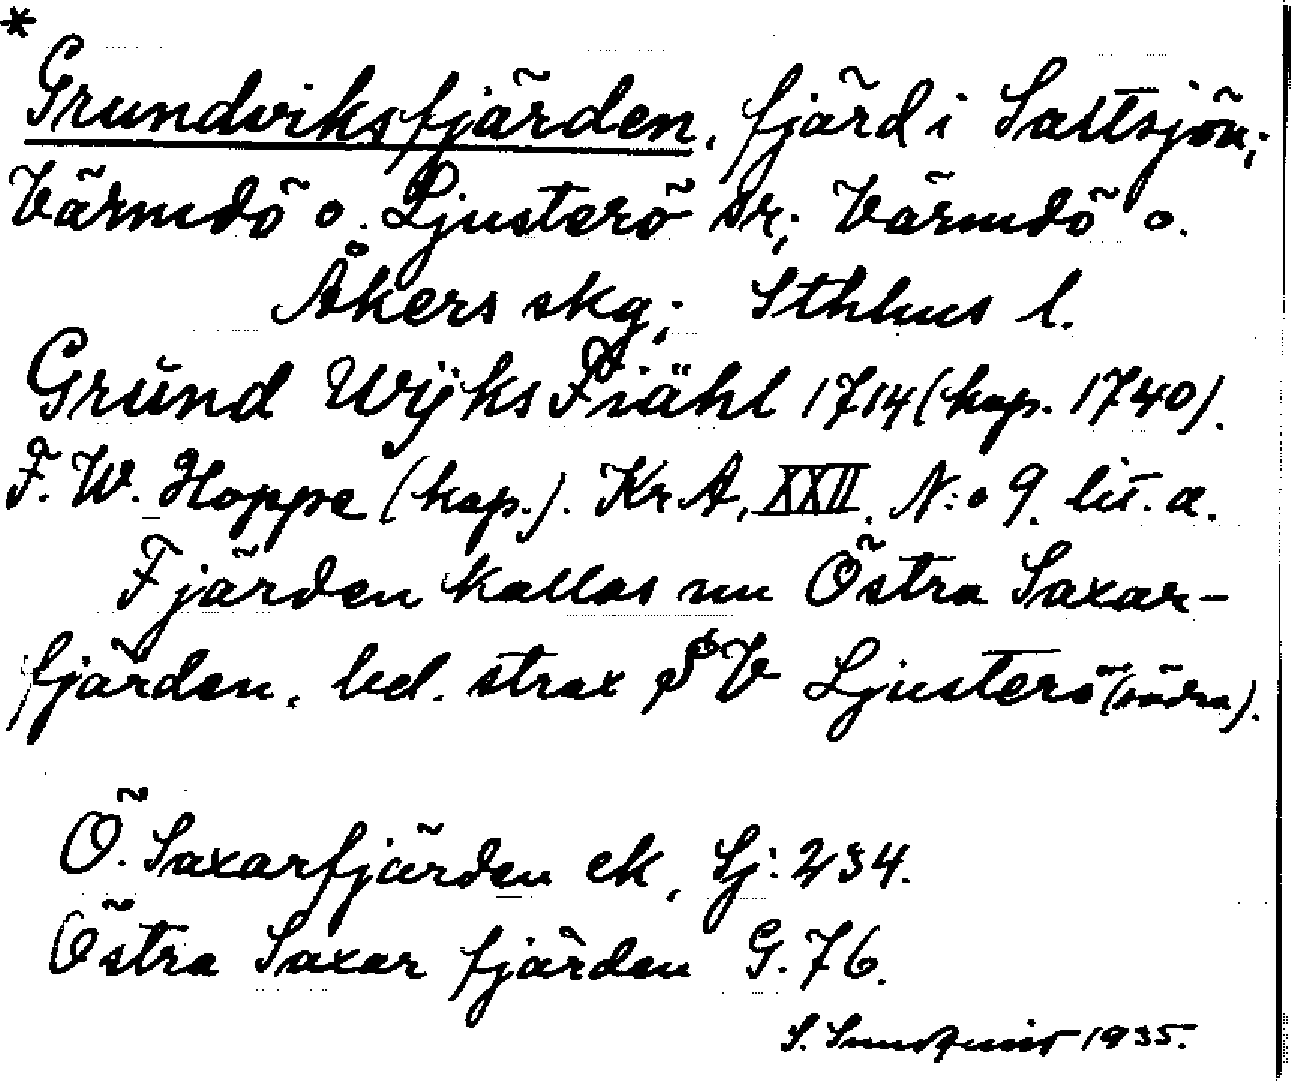 *
Grundviksfjärden, fjärd i Saltsjön;
Värmdö o. Ljusterö sr; Värmdö o.
Åkers skg; Sthlms l.
Grund Wijks Fiähl 1714 (kop. 1740).
F. W. Hoppe (kop.). KrA, XXII. N:o 9. lit. a.
Fjärden kallas nu Östra Saxar-
fjärden, bel. strax V Ljusterö (södra).
Ö. Saxarfjärden ek, Sj: 234.
Östra Saxar fjärden G. 76.
S. Sundquist 1935.